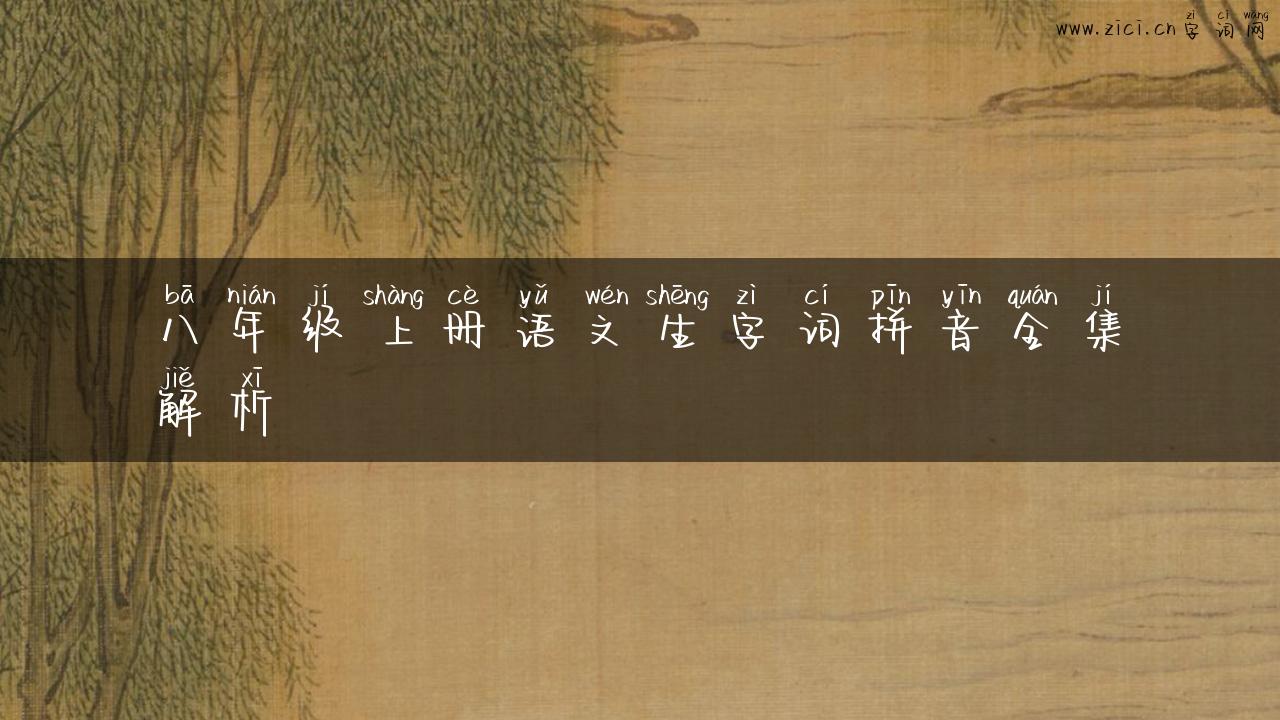 zì cí wǎng
www.zici.cn字词网
bā nián jí shàng cè yǔ wén shēng zì cí pīn yīn quán jí
八年级上册语文生字词拼音全集
jiě xī
解析